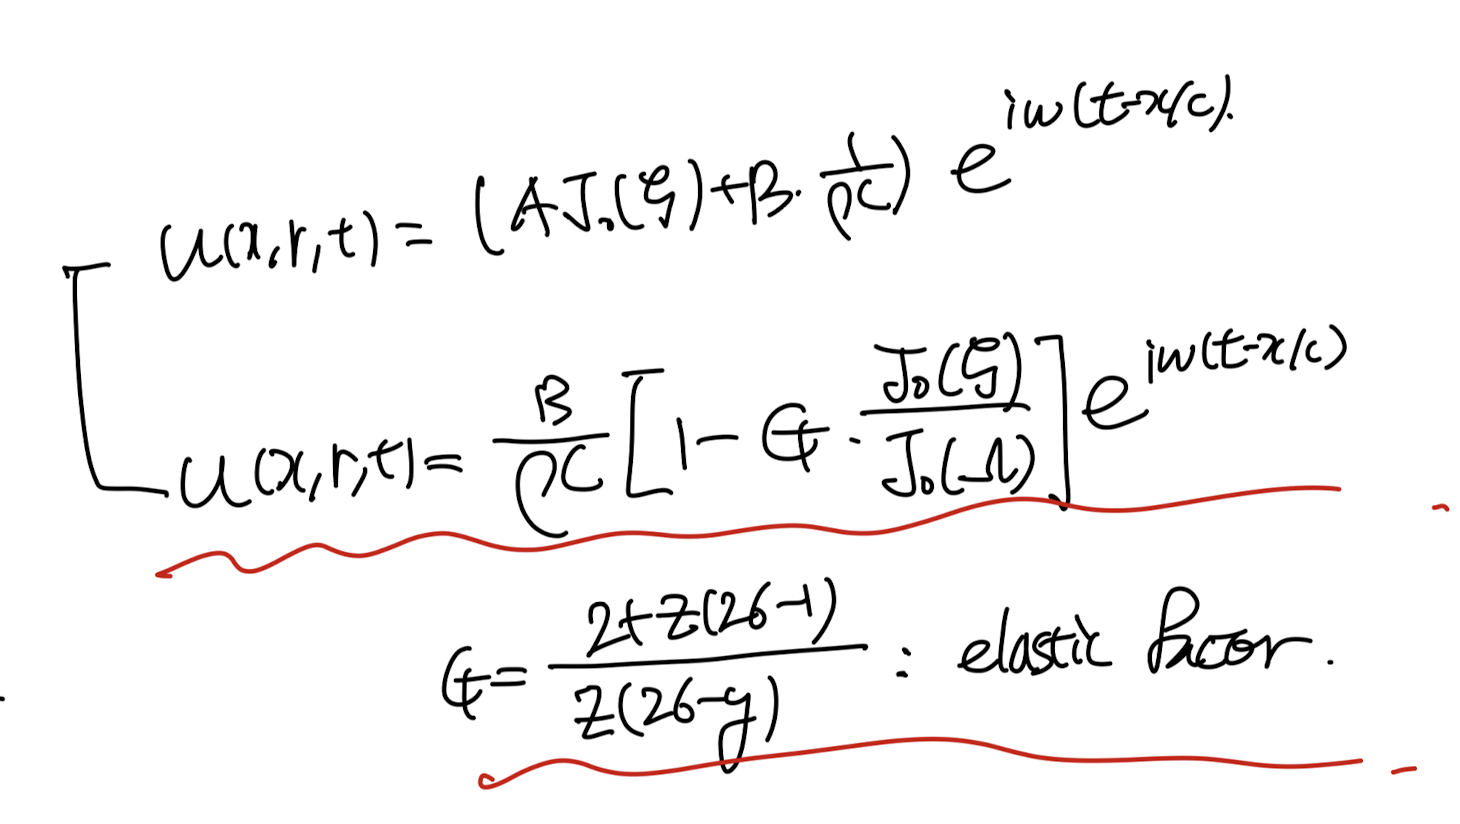 u(x,r,t) = (AJ₀(ζ)+B·1/ρc) e^{iω(t-x/c)}.
u(x,r,t) = B/ρc [1-G·J₀(ζ)/J₀(Ω)] e^{iω(t-x/c)}
G = 2+z(2σ-1)/z(2σ-g) : elastic facor.